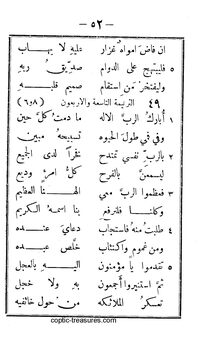 — ٥٢ —
ان فاض امواه غزار عليه لا يهاب
٥ فليبتهج على الدوام صديق ربه
وليفتخر من استقام صميم قلبه
٤٩ الترنيمة التاسعة والاربعون (٨و٦)
١ أبارك الرب الاله ما دمت كل حين
وفي فمي طول الحيوه تسبيحه مبين
٢ بالرب نفسي تمتدح فخرا لدى الجميع
ليسمعن بالفرح كل امرء وديع
٣ فعظموا الرب معي الهنا العظيم
وكلنا فلنرفع بنا اسمه الكريم
٤ طلبت منه فاستجاب دعاي عنده
ومن غموم واكتئاب خلص عبده
٥ تقدموا يا مؤمنون اليه بالعجل
ثم استنيروا أجمعون به ولا خجل
٦ تعسكر الملائكه من حول خائفيه
coptic-treasures.com